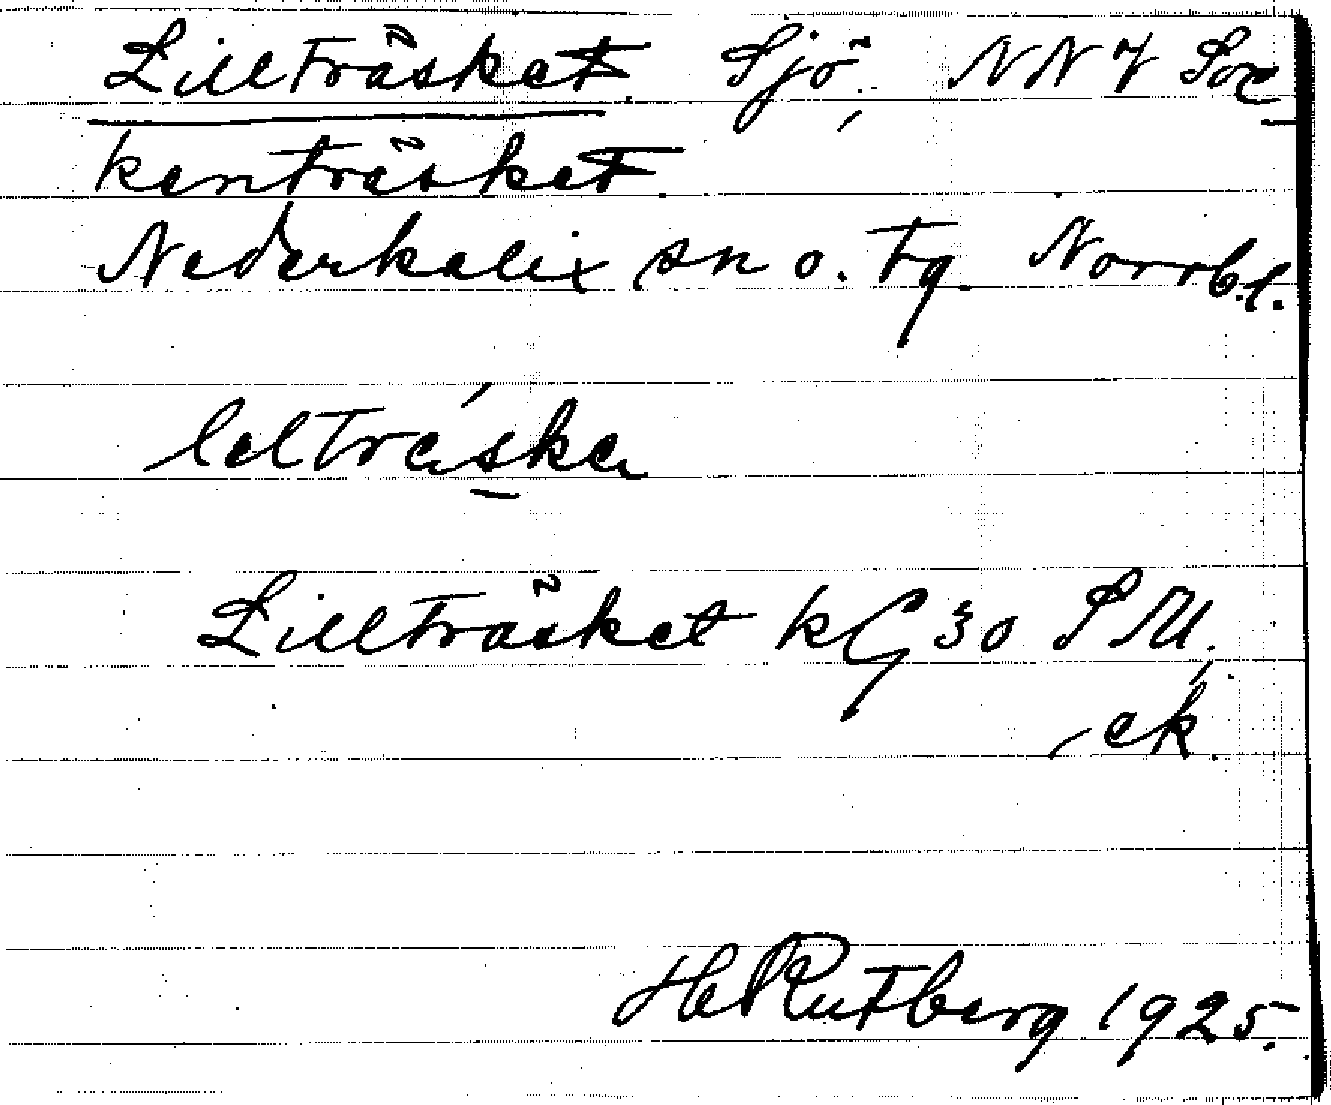 Lillträsket. Sjö, NNV Sor-
kenträsket.
Nederkalix sn o. tg. Norrb.l.
lilltræska
Lillträsket kG 30 SM,
ek.
H Rutberg 1925.